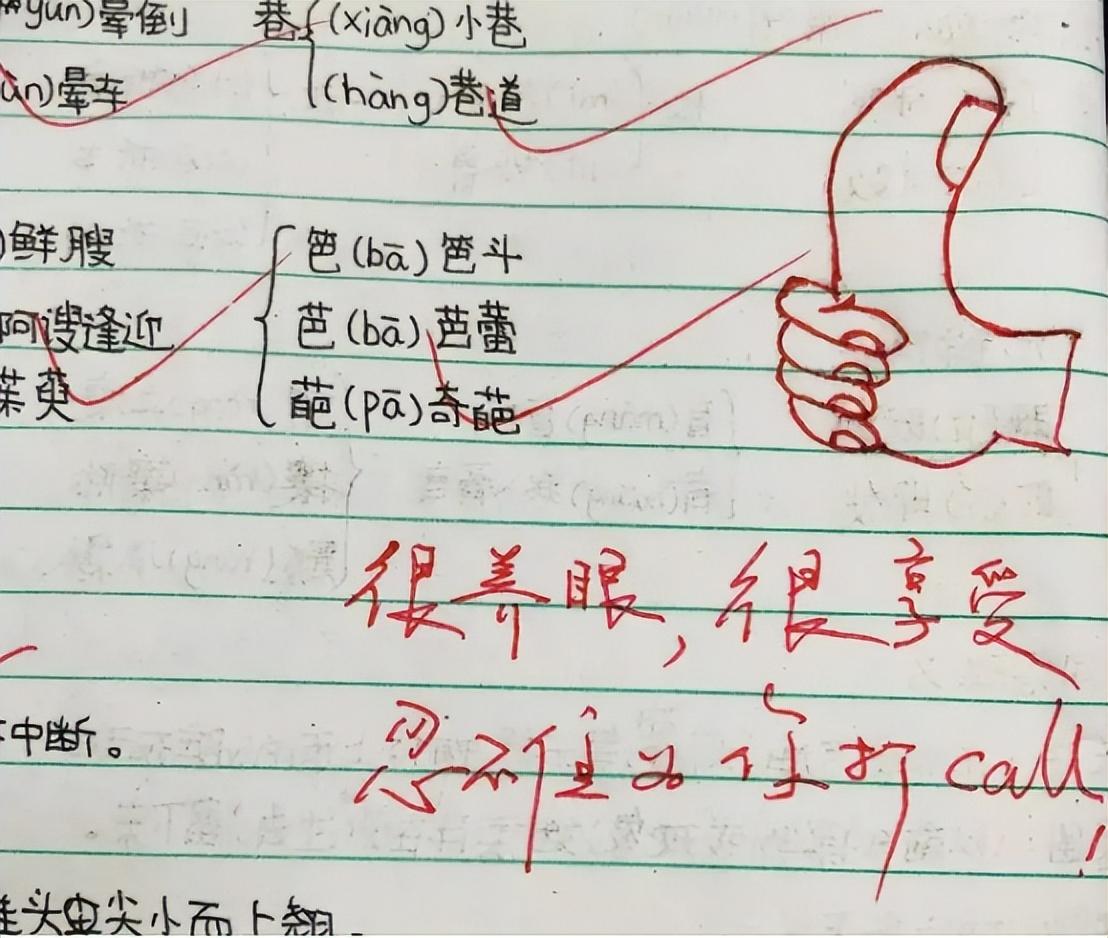 yūn)晕倒 巷{(xiàng)小巷
ùn)晕车 (hàng)巷道
)鲜膄 笆(bā)笆斗
阿谀逢迎 芭(bā)芭蕾
茱萸 葩(pā)奇葩
很养眼,很享受
中断。
忍不住为你打call!
头虫尖小而上翘